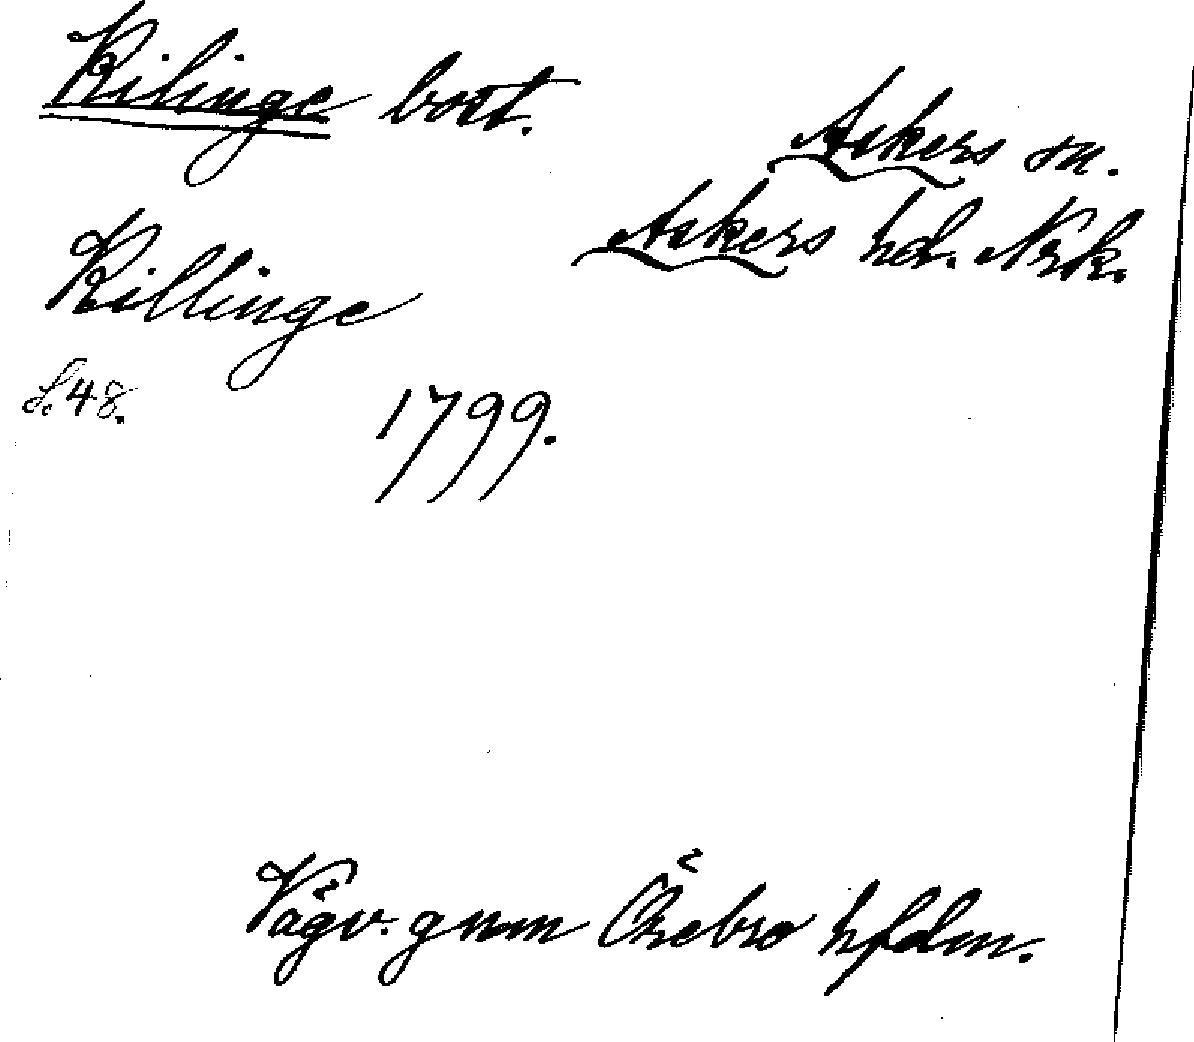 Kilinge bost.
Askers sn.
Askers hd. Nrk.
Killinge
S. 48.
1799.
Vägv. gnm Örebro hfdm.